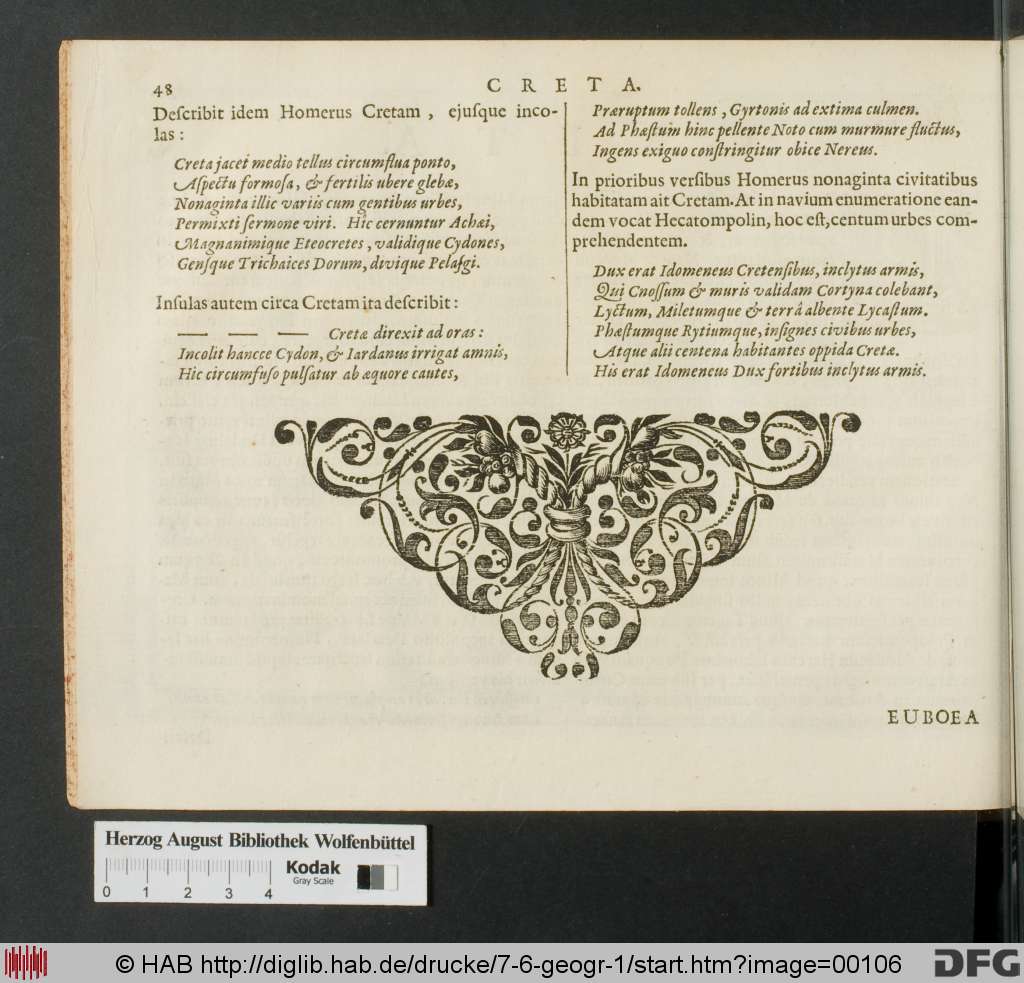 48
CRETA.
Deſcribit idem Homerus Cretam, ejuſque inco-
las:
Creta jacet medio tellus circumflua ponto,
Aſpectu formoſa, & fertilis ubere glebæ,
Nonaginta illic variis cum gentibus urbes,
Permixti ſermone viri. Hic cernuntur Achæi,
Magnanimique Eteocretes, validique Cydones,
Genſque Trichaices Dorum, divique Pelaſgi.
Inſulas autem circa Cretam ita deſcribit:
— — — Cretæ direxit ad oras:
Incolit hancce Cydon, & Iardanus irrigat amnis,
Hic circumfuſo pulſatur ab æquore cautes,
Præruptum tollens, Gyrtonis ad extima culmen.
Ad Phæſtum hinc pellente Noto cum murmure fluctus,
Ingens exiguo conſtringitur obice Nereus.
In prioribus verſibus Homerus nonaginta civitatibus
habitatam ait Cretam. At in navium enumeratione ean-
dem vocat Hecatompolin, hoc eſt, centum urbes com-
prehendentem.
Dux erat Idomeneus Cretenſibus, inclytus armis,
Qui Cnoſſum & muris validam Cortyna colebant,
Lyctum, Miletumque & terrâ albente Lycaſtum.
Phæſtumque Rytiumque, inſignes civibus urbes,
Atque alii centena habitantes oppida Cretæ.
His erat Idomeneus Dux fortibus inclytus armis.
EUBOEA
Herzog August Bibliothek Wolfenbüttel
Kodak
Gray Scale
0 1 2 3 4
© HAB http://diglib.hab.de/drucke/7-6-geogr-1/start.htm?image=00106
DFG